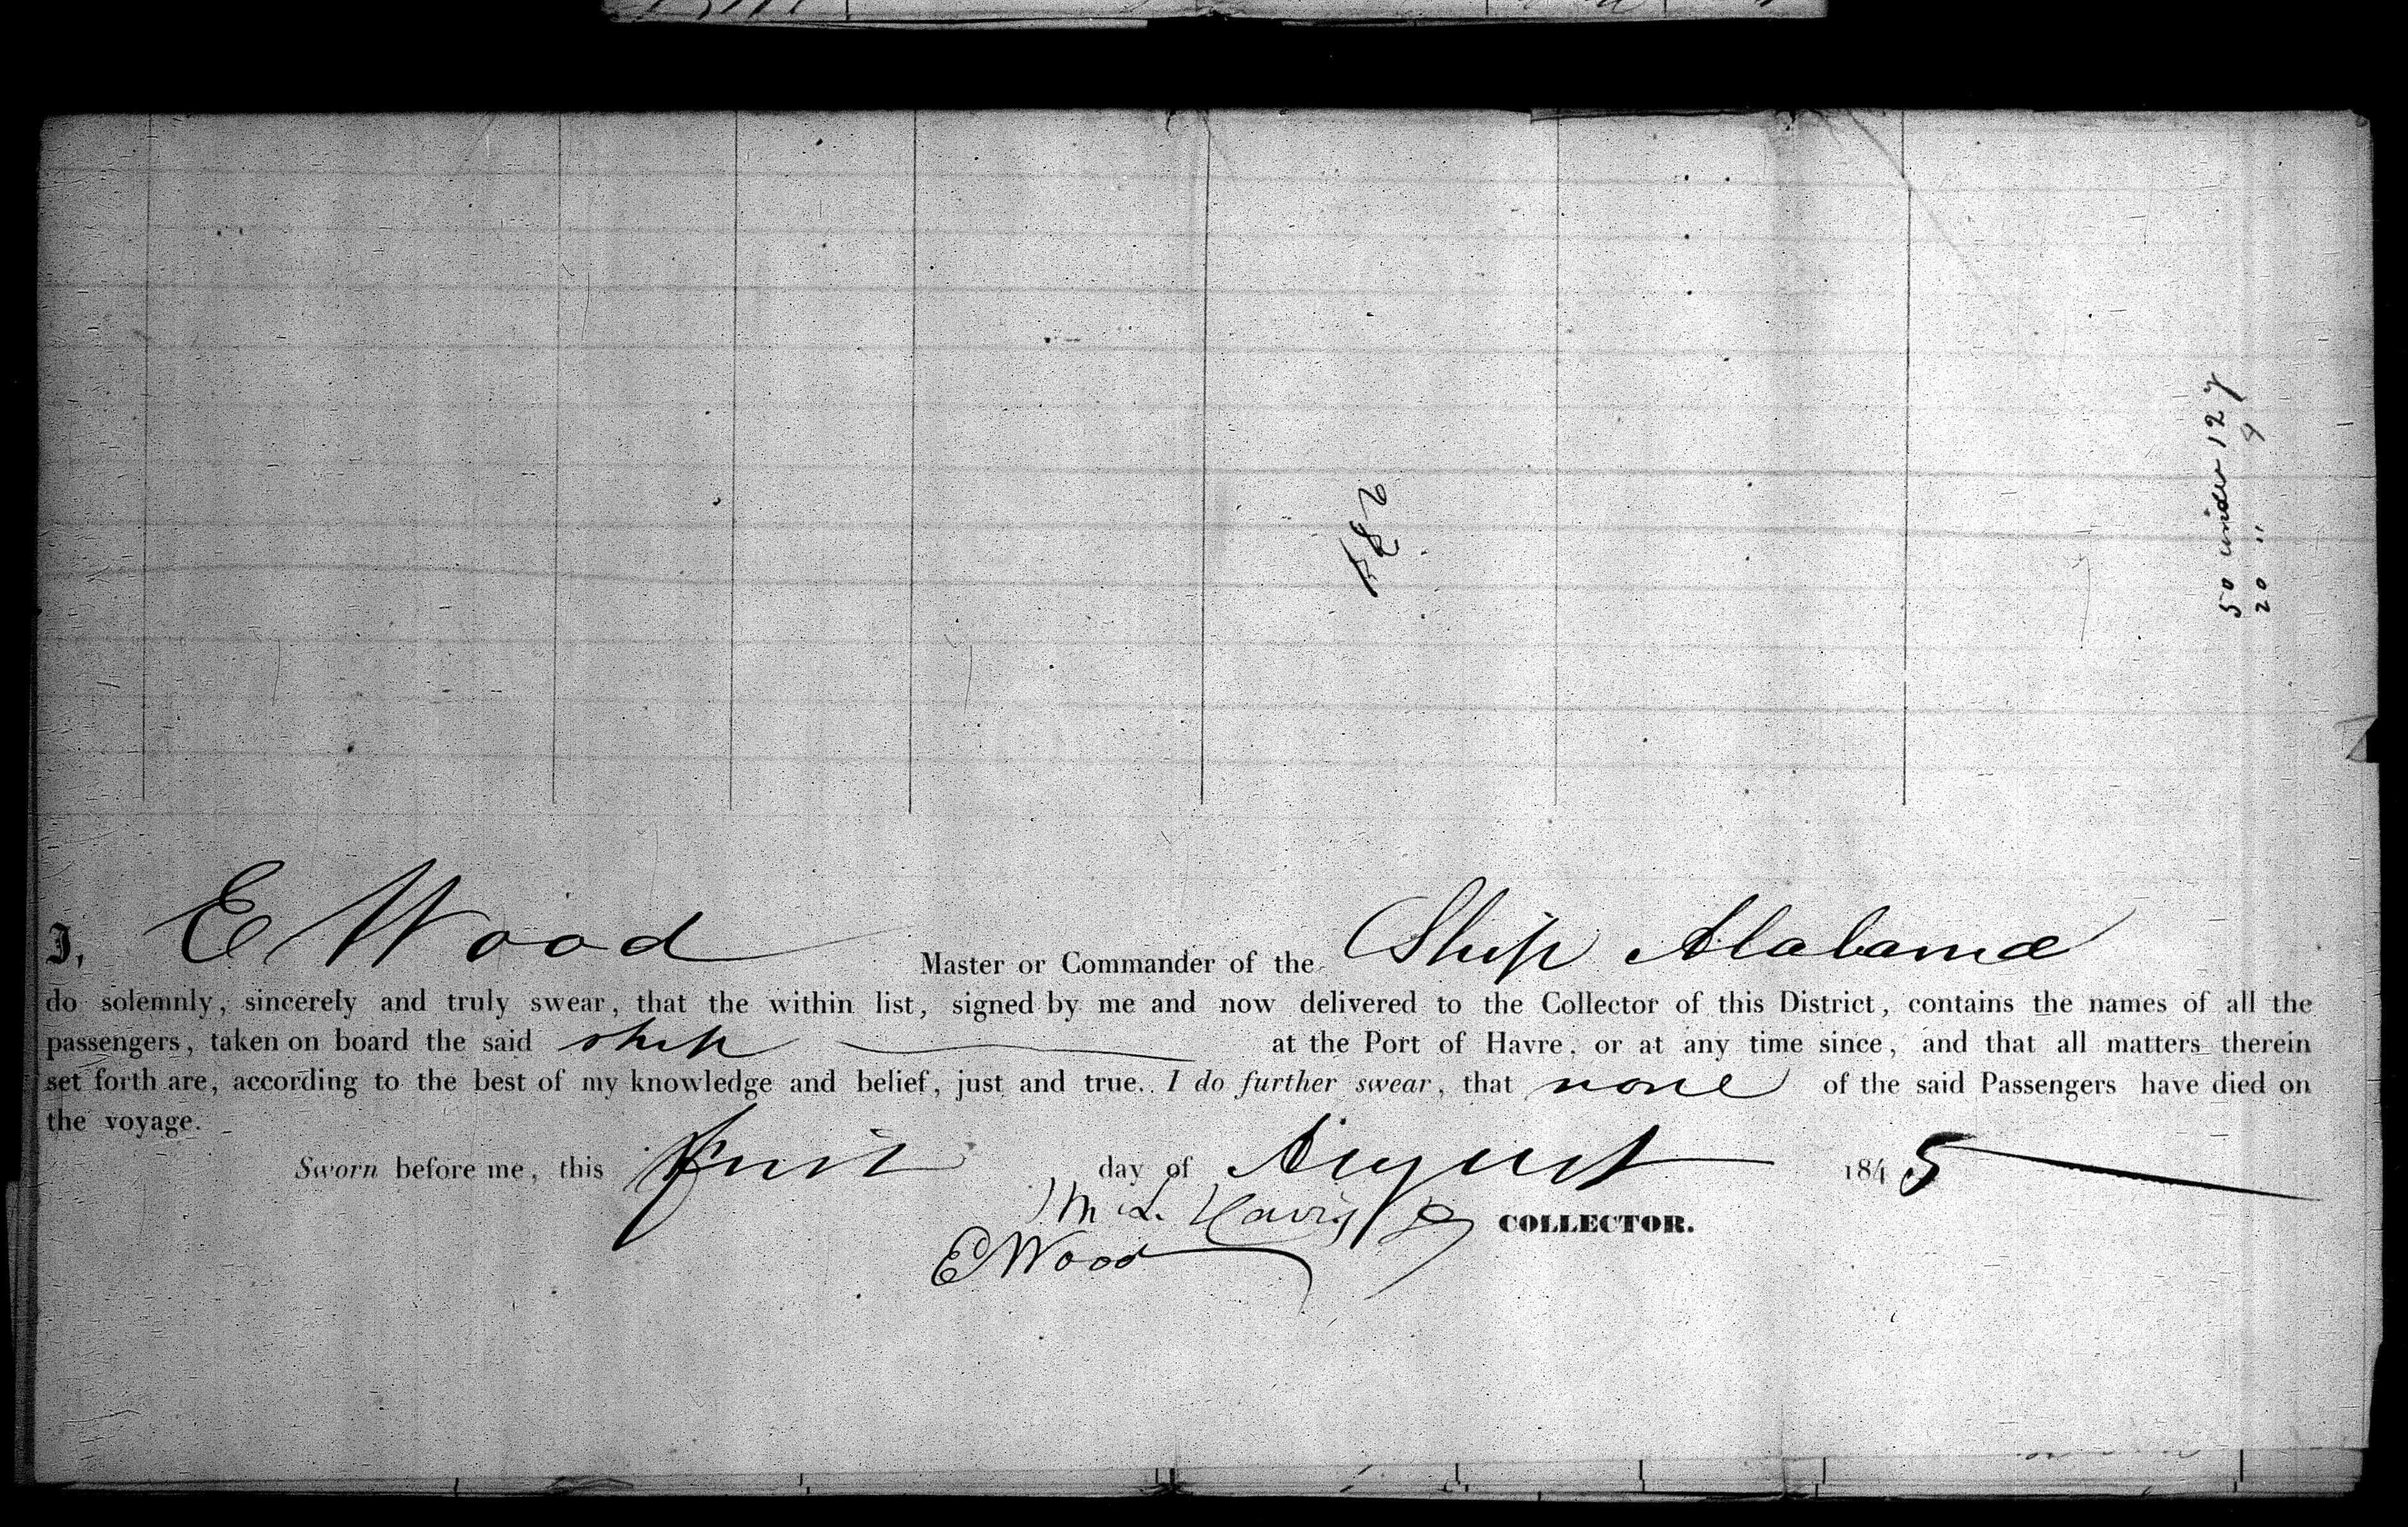 50 under 12 y
20 " 4
I, E Wood Master or Commander of the Ship Alabama
do solemnly, sincerely and truly swear, that the within list, signed by me and now delivered to the Collector of this District, contains the names of all the
passengers, taken on board the said ship at the Port of Havre, or at any time since, and that all matters therein
set forth are, according to the best of my knowledge and belief, just and true. I do further swear, that none of the said Passengers have died on
the voyage.
Sworn before me, this first day of August 1845
M L Davis COLLECTOR.
E Wood